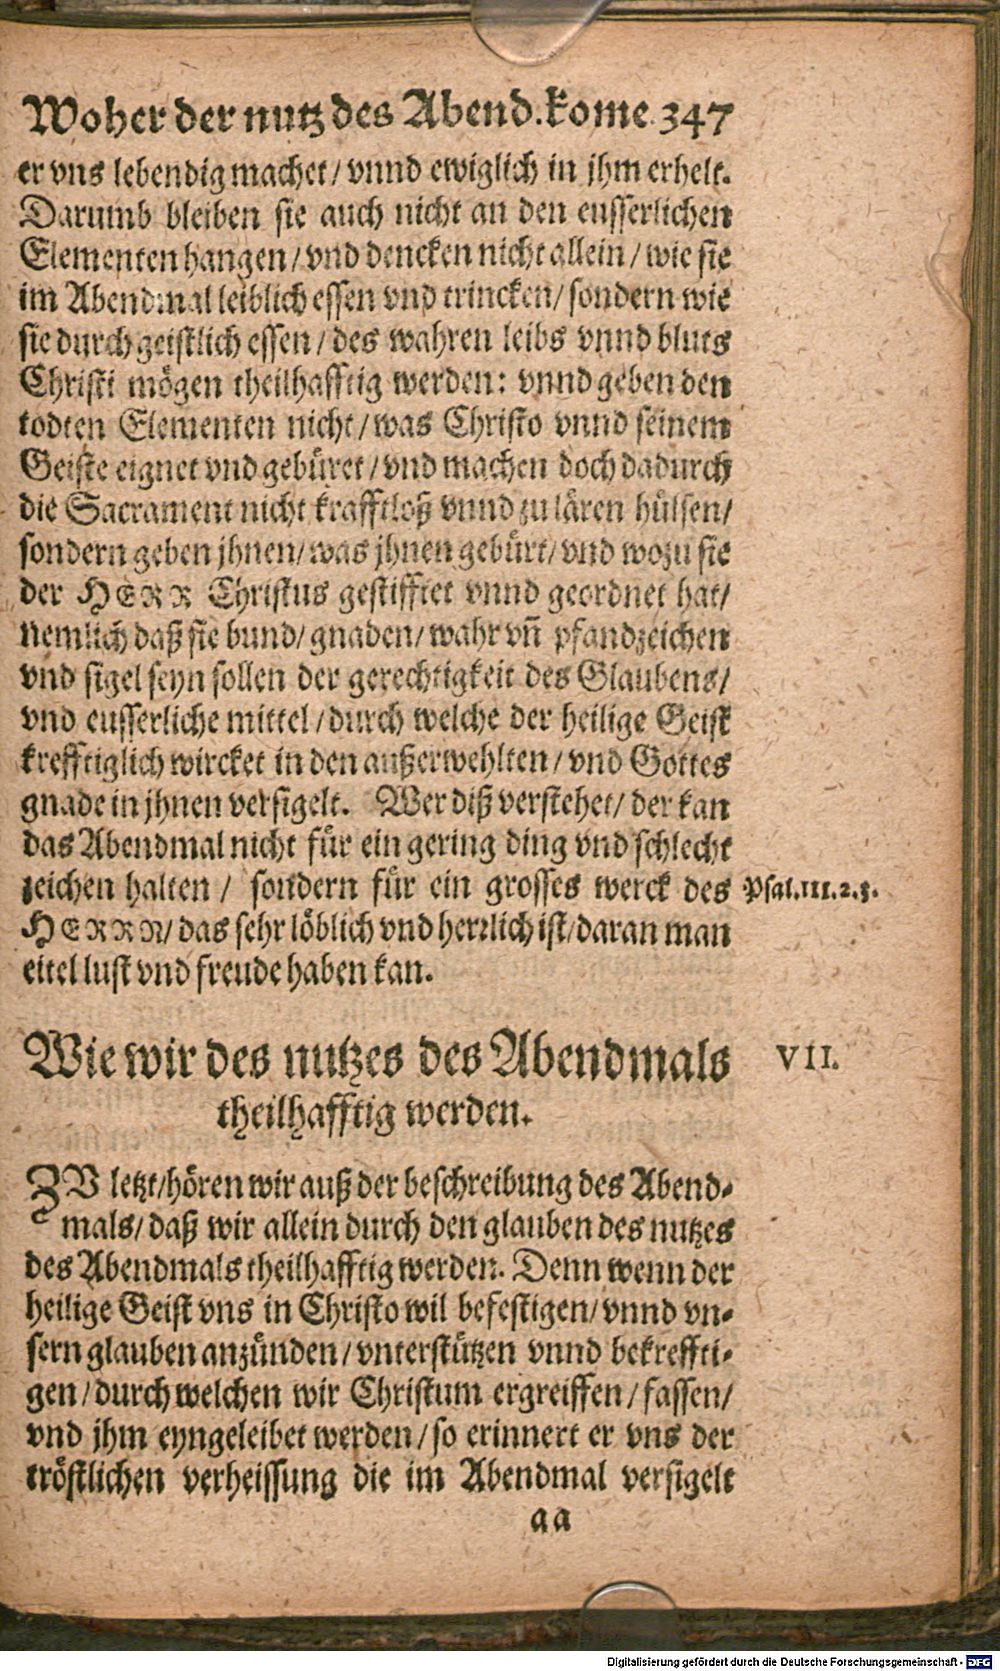 Woher der nutz des Abend. kome. 347
er vns lebendig machet/ vnnd ewiglich in jhm erhelt.
Darumb bleiben sie auch nicht an den eusserlichen
Elementen hangen/ vnd dencken nicht allein/ wie sie
im Abendmal leiblich essen vnd trincken/ sondern wie
sie durch geistlich essen/ des wahren leibs vnnd bluts
Christi mögen theilhafftig werden: vnnd geben den
todten Elementen nicht/ was Christo vnnd seinem
Geiste eignet vnd gebüret/ vnd machen doch dadurch
die Sacrament nicht krafftloß vnnd zu lären hülsen/
sondern geben jhnen/ was jhnen gebürt/ vnd wozu sie
der HERR Christus gestifftet vnnd geordnet hat/
nemlich daß sie bund/ gnaden/ wahr vñ pfandzeichen
vnd sigel seyn sollen der gerechtigkeit des Glaubens/
vnd eusserliche mittel/ durch welche der heilige Geist
krefftiglich wircket in den außerwehlten/ vnd Gottes
gnade in jhnen versigelt. Wer diß verstehet/ der kan
das Abendmal nicht für ein gering ding vnd schlecht
zeichen halten/ sondern für ein grosses werck des
Psal.111.2.3.
HERRN/ das sehr löblich vnd herrlich ist/ daran man
eitel lust vnd freude haben kan.
Wie wir des nutzes des Abendmals
VII.
theilhafftig werden.
ZV letzt/ hören wir auß der beschreibung des Abend-
mals/ daß wir allein durch den glauben des nutzes
des Abendmals theilhafftig werden. Denn wenn der
heilige Geist vns in Christo wil befestigen/ vnnd vn-
sern glauben anzünden/ vnterstützen vnnd bekreffti-
gen/ durch welchen wir Christum ergreiffen/ fassen/
vnd jhm eyngeleibet werden/ so erinnert er vns der
tröstlichen verheissung die im Abendmal versigelt
aa
Digitalisierung gefördert durch die Deutsche Forschungsgemeinschaft - DFG